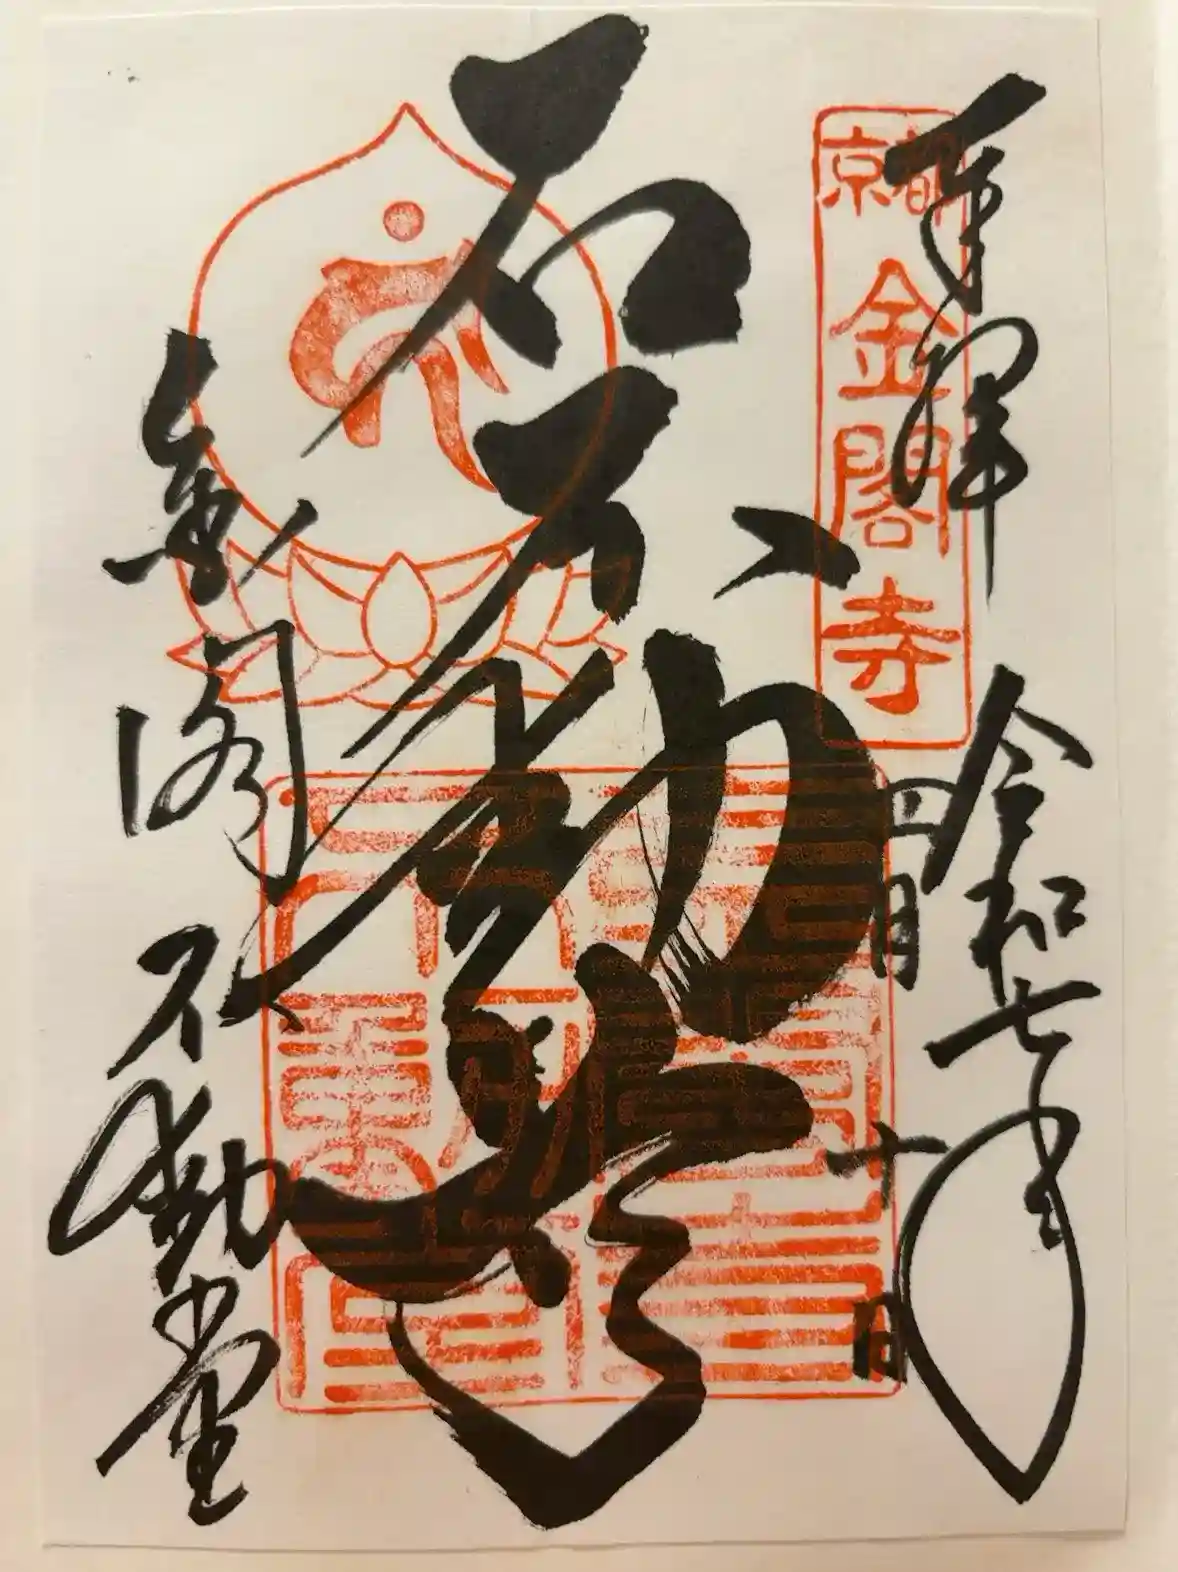 奉拝
令和七年
四月十日
京都
金閣寺
石不動尊
金閣不動堂